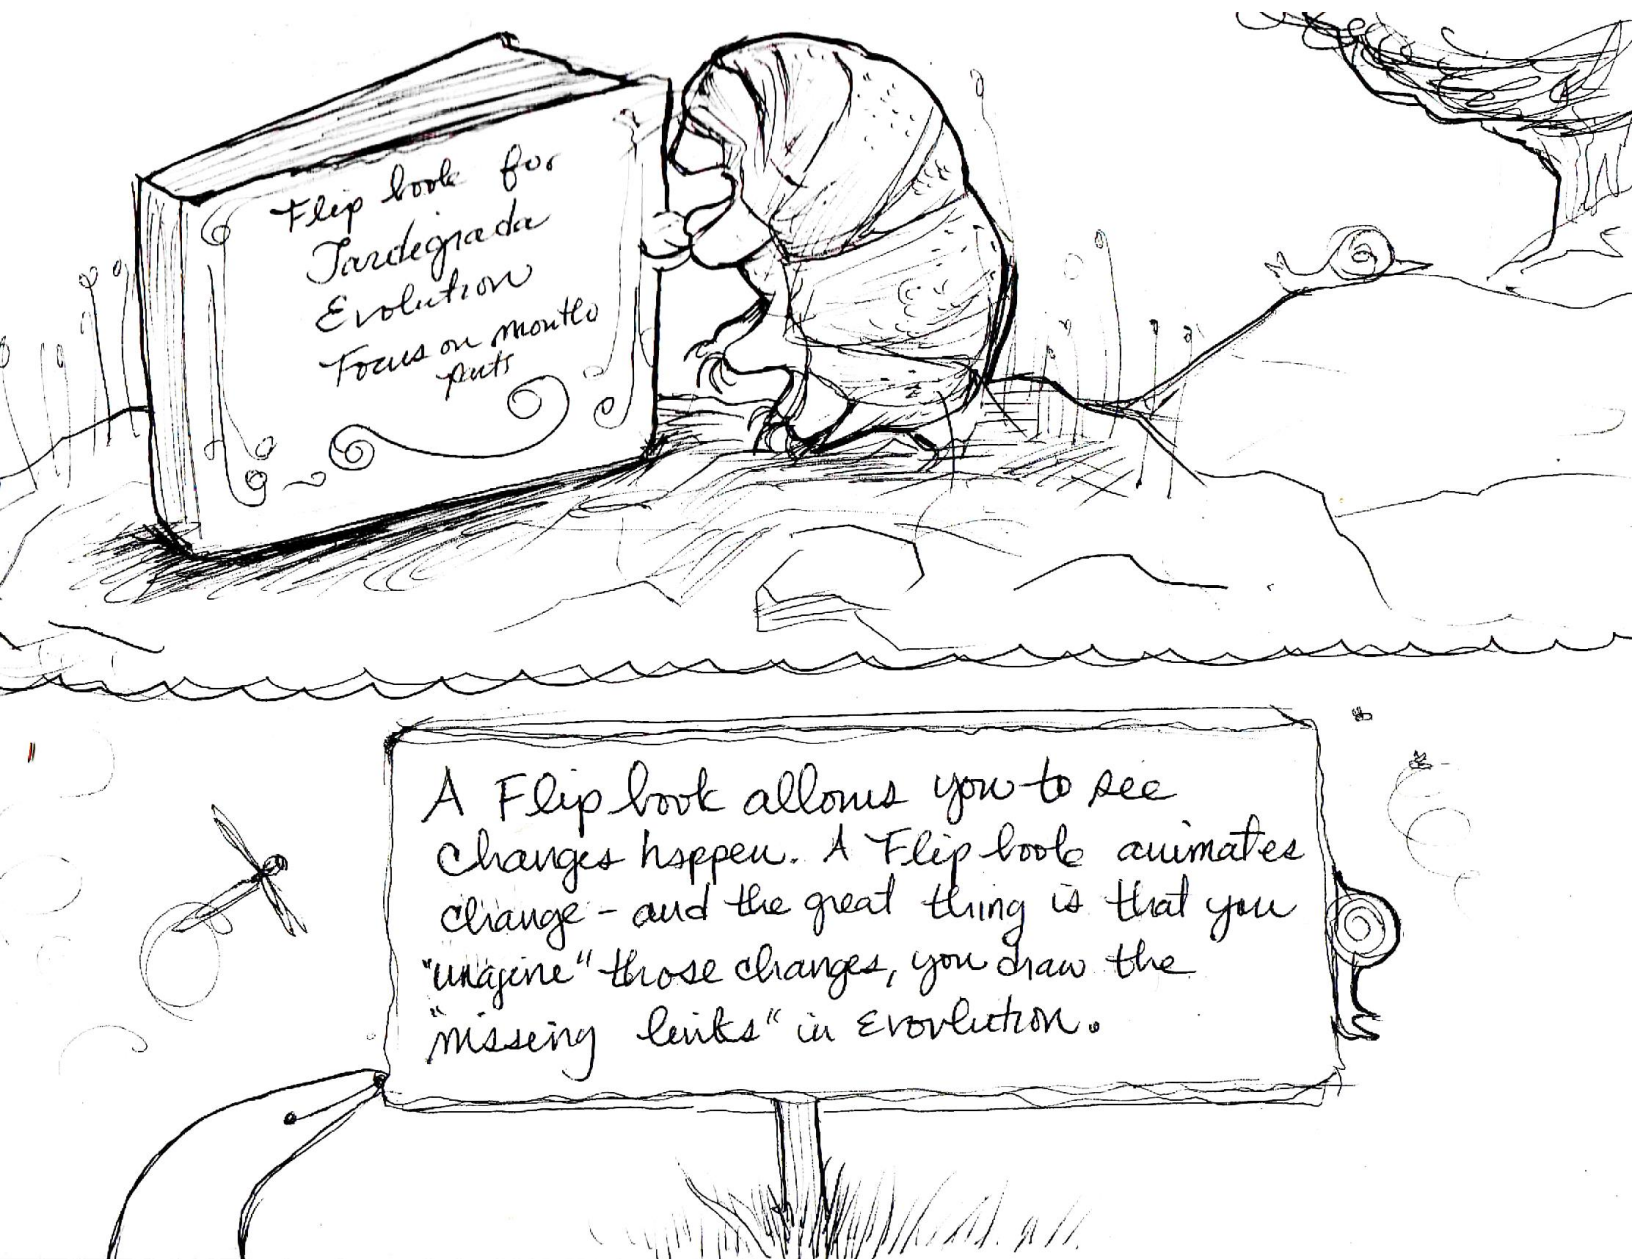 Flip book for
Tardegrada
Evolution
Focus on mouth
parts
A Flip book allows you to see
changes happen. A Flip book animates
change - and the great thing is that you
"imagine" those changes, you draw the
"missing links" in Evovlution.